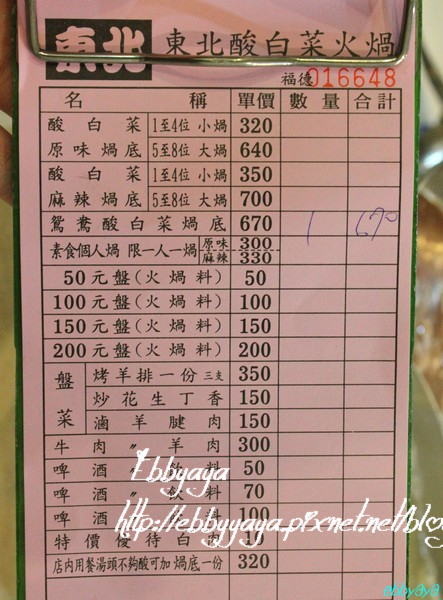 東北 東北酸白菜火鍋
福德 016648
名 稱 單價 數量 合計
酸白菜 1至4位 小鍋 320
原味鍋底 5至8位 大鍋 640
酸白菜 1至4位 小鍋 350
麻辣鍋底 5至8位 大鍋 700
鴛鴦酸白菜鍋底 670 1 670
素食個人鍋 限一人一鍋 原味 300
麻辣 330
50元盤(火鍋料) 50
100元盤(火鍋料) 100
150元盤(火鍋料) 150
200元盤(火鍋料) 200
盤菜 烤羊排一份 三支 350
炒花生丁香 150
滷羊腱肉 150
牛肉〃羊肉 300
啤酒〃飲料 50
啤酒〃飲料 70
啤酒 100
特價優待白肉 10
店內用餐湯頭不夠酸可加 鍋底一份 320
Ebbyaya
http://ebbyyaya.pixnet.net/blog
ebbyaya